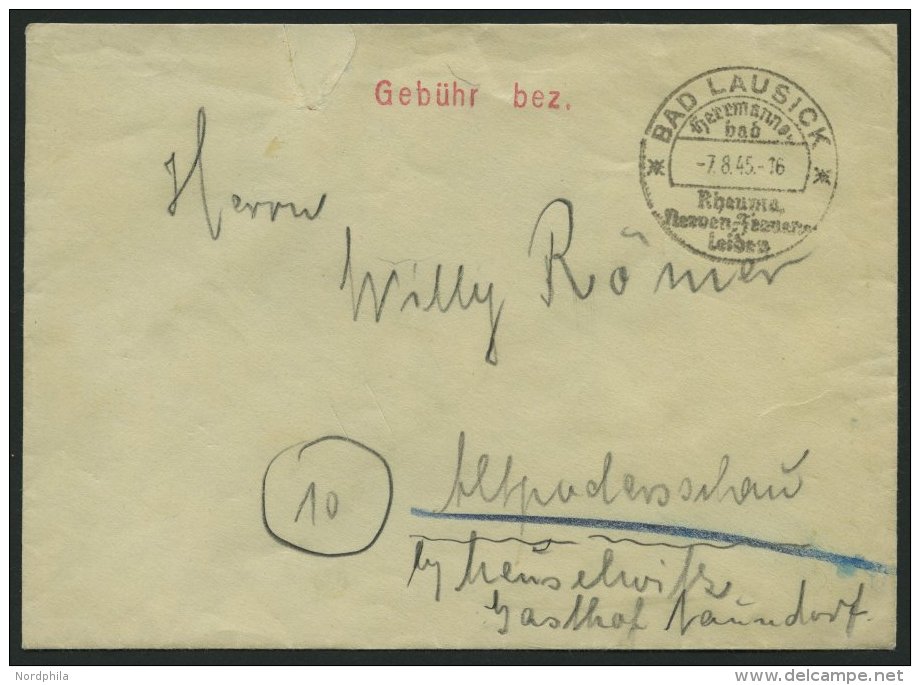 Gebühr bez.
BAD LAUSICK
Herrmanns-
bad
-7.8.45.-16
Rheuma,
Nerven-Frauen-
leiden
Herrn
Willy Römer
10
Altpoderschau
by Meuselwitz
Gasthof Naundorf.
Nordphila
www.delcampe.net